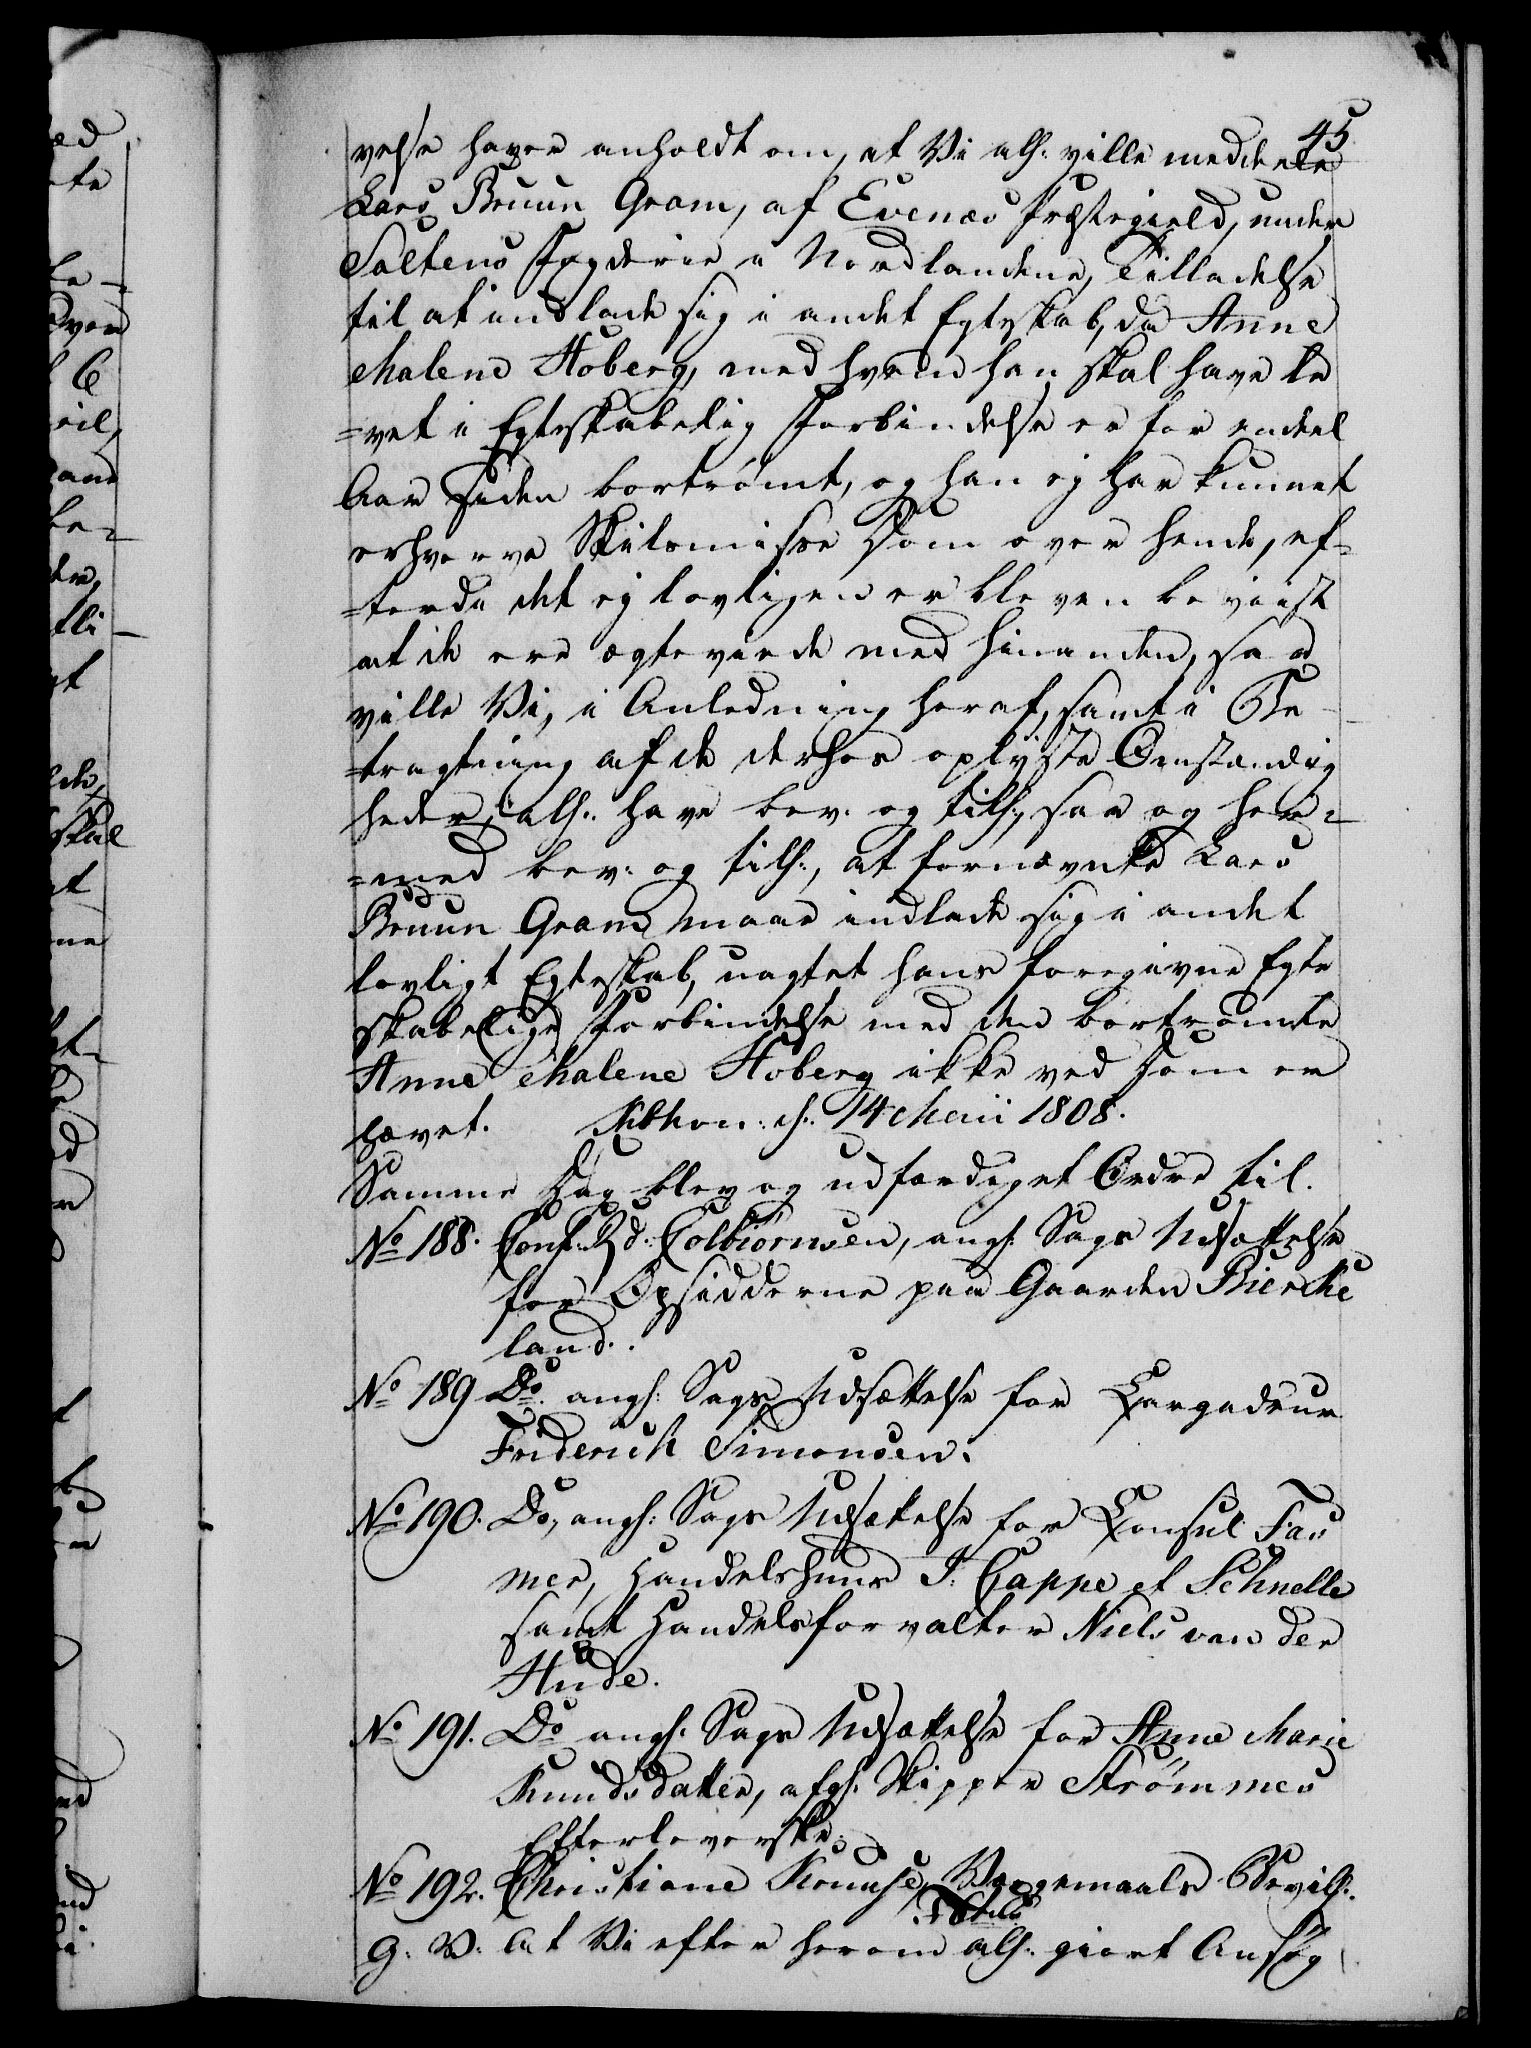 45
velse haver anholdt om, at Vi allr: ville meddeele
Lars Bruun Gram, af Evenæs Præstegield, under
Saltens Fogderie i Nordlandene, Tilladelse
til at indlade sig i andet Egteskab, da Anne
Malene Hoberg, med hvem han skal have le
=vet i Egteskabelig Forbindelse er for endeel
Aar siden bortrømt, og han ej har kunnet
erhverve Skilsmisse Dom over hende, ef=
=terdi det ej lovligen er bleven beviist
at de ere ægteviede med hinanden, saa
ville Vi, i Anledning heraf, samt i Be
=tragtning af de derhos oplyste Omstændig
heder, allr: have bev: og till:, saa og her=
=med bev: og till:, at fornævnte Lars
Bruun Gram maae indlade sig i andet
lovligt Egteskab, uagtet hans foregivne Egte
skabelige Forbindelse med den bortrømte
Anne Malene Hoberg ikke ved Dom er
hævet. Kbhvn: d: 14 Maii 1808.
Samme Dag blev og udfærdiget Ordre til.
No 188. Conf: Rd: Colbiørnsen, angl: Sags Udsættelse
for Opsidderne paa Gaarden Bierke
land.
No 189 Do. angl: Sags Udsættelse for Cargadeur
Friderich Simonsen.
No 190. Do, angl: Sags Udsættelse for Consul Fas
mer, Handelshuus J: Cappe et Schnelle
samt Handelsforvalter Niels van der
Hude.
No 191. Do angl: Sags Udsættelse for Anne Marie
Knudsdatter, afgl: Skipper Strømmes
Efterleverske.
No 192. Christiane Kruuse, Værgemaals Bevill:
G: V: At Vi efter herom allr: giort Ansøg